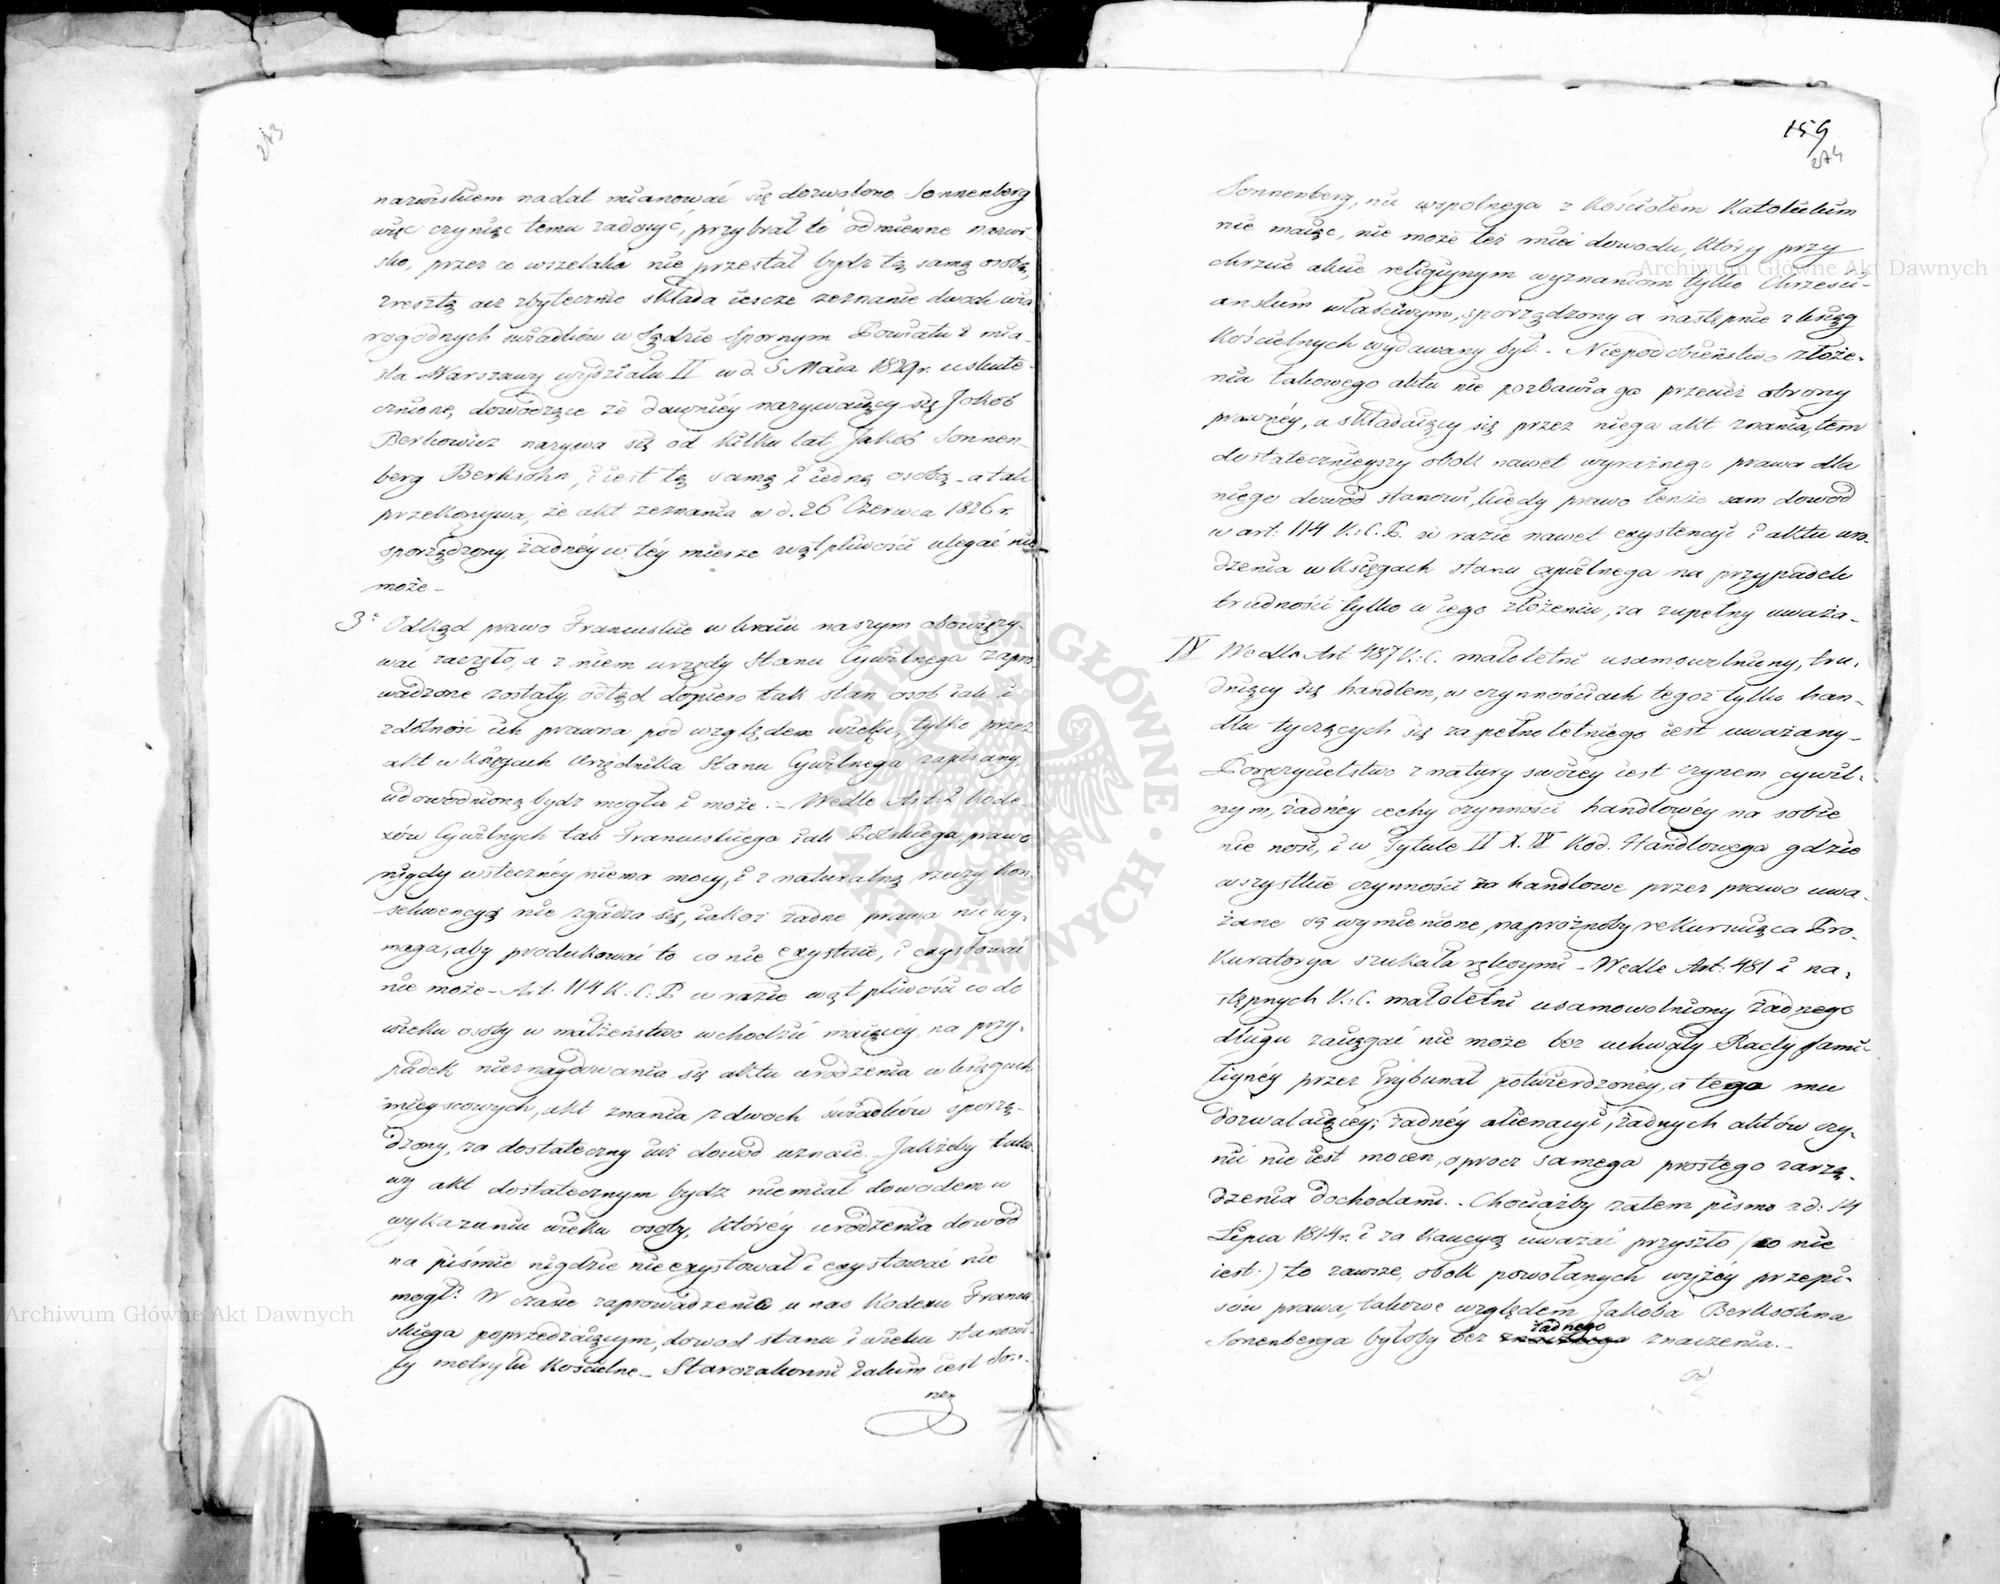 273
nazwiskiem nadal mianować się dozwolono. Sonnenberg
więc czyniąc temu zadosyć, przybrał to odmienne nazwi-
sko, przez co wszelako nie przestał bydz tą samą osobą,
zresztą acz zbytecznie składa iescze zeznanie dwoch wia
rogodnych świadków w Sądzie Spornym Powiatu i mia-
sta Warszawy wydziału II w d. 5 Maia 1829 r. uskute-
cznione, dowodzące że dawniéy nazywaiący się Jakob
Berkowicz nazywa się od kilku lat Jakób Sonnen-
berg Berksohn, i iest tą samą i iedną osobą - a tak
przekonywa, że akt zeznania w d. 26 Czerwca 1826 r.
sporządzony żadnéy w téy mierze wątpliwości ulegać nie
może -
3° Odkąd prawo Francuskie w kraiu naszym obowiązy-
wać zaczęło, a z niem urzędy Stanu Cywilnego zapro-
wadzone zostały, odtąd dopiero tak stan osob iak i
zdolność ich prawna pod względem wieku, tylko przez
akt w księgach Urzędnika Stanu Cywilnego zapisany,
udowodnioną bydz mogła i może. - Wedle Art. 2 Kode-
xów Cywilnych tak Francuskiego iak Polskiego prawo
nigdy wstecznéy niema mocy, i z naturalną rzeczy kon-
sekwencyą nie zgadza się, iakoż żadne prawo nie wy-
maga, aby produkować to co nie exystuie, i exystować
nie może - Art. 114 K. C. P. w razie wątpliwości co do
wieku osoby w małżeństwo wchodzić maiącéy, na przy-
padek nieznaydowania się aktu urodzenia w księgach
mieyscowych, akt znania z dwoch świadków sporzą-
dzony, za dostateczny iuż dowod uznaie. Jakżeby tako-
wy akt dostatecznym bydz niemiał dowodem w
wykazaniu wieku osoby, któréy urodzenia dowód
na piśmie nigdzie nie exystował i exystować nie
mógł? W czasie zaprowadzenia u nas Kodexu Francu-
skiego poprzedzaiącym, dowod stanu i wieku stanowi-
ły metryki Kościelne - Starozakonni iakim iest Son-
nen
159
274
Sonnenberg, nic wspolnego z Kościołem Katolickim
nie maiąc, nie może też mieć dowodu, który przy
chrzcie akcie religiynym wyznaniom tylko Chrześci-
anskim właściwym, sporządzony a następnie z ksiąg
Kościelnych wydawany był. - Niepodobieństwo złoże-
nia takowego aktu nie pozbawia go przecież obrony
prawnéy, a składaiący się przez niego akt znania, tem
dostatecznieyszy obok nawet wyraznego prawa dla
niego dowód stanowi, kiedy prawo tenże sam dowód
w art. 114 K. C. P. w razie nawet exystencyi i aktu uro-
dzenia w Księgach stanu cywilnego na przypadek
trudności tylko w iego złożeniu, za zupełny uważa -
IV Wedle Art. 487 K. C. małoletni usamowolniony, tru-
dniący się handlem, w czynnościach tegoż tylko han-
dlu tyczących się za pełnoletniego iest uważany -
Poręczycielstwo z natury swoiéy iest czynem cywil-
nym, żadnéy cechy czynności handlowéy na sobie
nie nosi, i w Tytule II X. IV Kod. Handlowego gdzie
wszystkie czynności za handlowe przez prawo uwa-
żane są wymienione, naprożnoby rekursuiąca Pro-
kuratorya szukała rękoymi - Wedle Art. 481 i na-
stępnych K. C. małoletni usamowolniony żadnego
długu zaciągać nie może bez uchwały Rady fami-
liynéy przez Trybunał potwierdzonéy, a tego mu
dozwalaiącéy; żadnéy alienacyi, żadnych aktów czy-
nić nie iest mocen, oprocz samego prostego zarzą-
dzenia dochodami. - Chociażby zatem pismo z d. 14
Lipca 1814 r. i za kaucyą uważać przyszło (co nie
iest) to zawsze, obok powołanych wyżéy przepi-
sów prawa, takowe względem Jakóba Berksohna
Sonenberga byłoby bez żadnego znaczenia. -